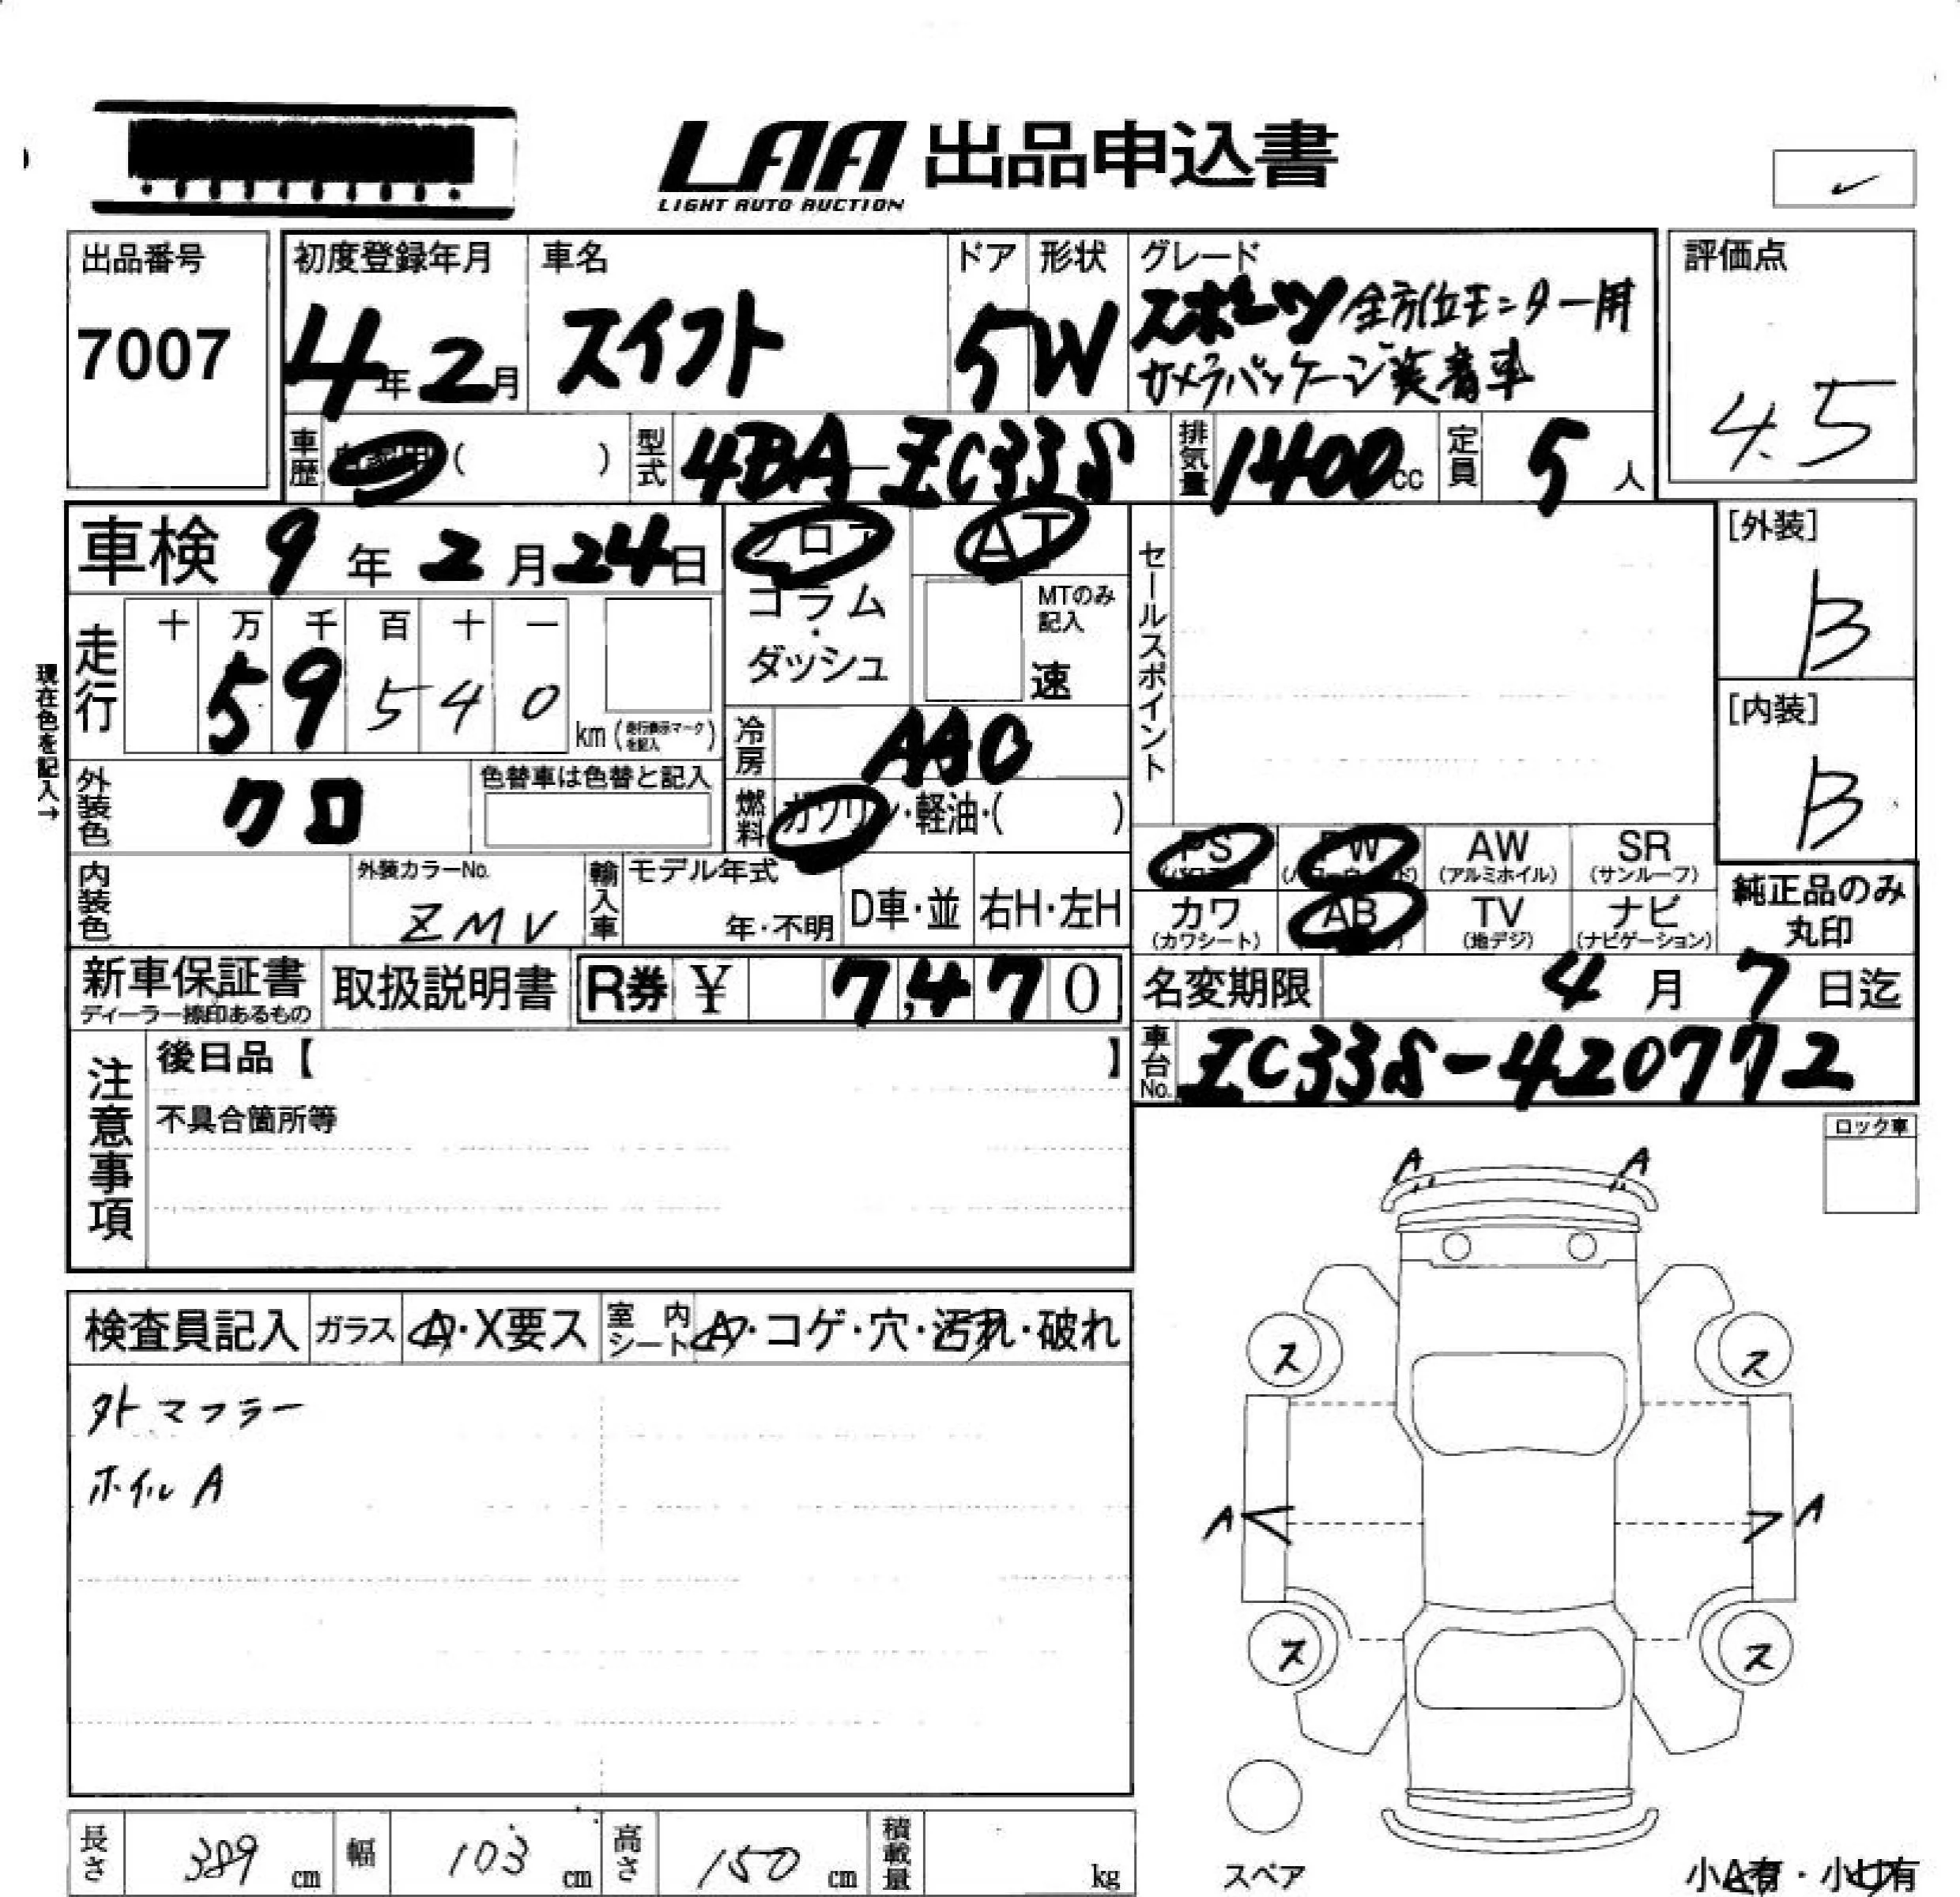 LAA 出品申込書
LIGHT AUTO AUCTION
出品番号
7007
初度登録年月
4年2月
車名
スイフト
ドア
5
形状
W
グレード
スポーツ 全方位モニター用
カメラパッケージ装着車
評価点
4.5
車歴
( )
型式
4BA-ZC33S
排気量
1400cc
定員
5人
車検 9年2月24日
フロア
コラム・
ダッシュ
AT
MTのみ
記入
速
セールスポイント
[外装]
B
[内装]
B
現在色を記入→
走行
十 万 千 百 十 一
5 9 5 4 0
km(走行表示マークを記入)
冷房
AAC
外装色
クロ
色替車は色替と記入
燃料
ガソリン・軽油・( )
PS
PW
AW
(アルミホイル)
SR
(サンルーフ)
内装色
外装カラーNo.
ZMV
輸入車
モデル年式
年・不明
D車・並
右H・左H
カワ
(カワシート)
AB
TV
(地デジ)
ナビ
(ナビゲーション)
純正品のみ
丸印
新車保証書
ディーラー捺印あるもの
取扱説明書
R券 ¥ 7,470
名変期限 4月7日迄
車台No.
ZC33S-420772
注意事項
後日品【 】
不具合箇所等
ロック車
A A
検査員記入
ガラス
A・X要ス
室内シート
A・コゲ・穴・汚れ・破れ
外マフラー
ホイルA
ス ス
A A
ス ス
スペア
長さ
389 cm
幅
103 cm
高さ
150 cm
積載量
kg
小A有・小U有